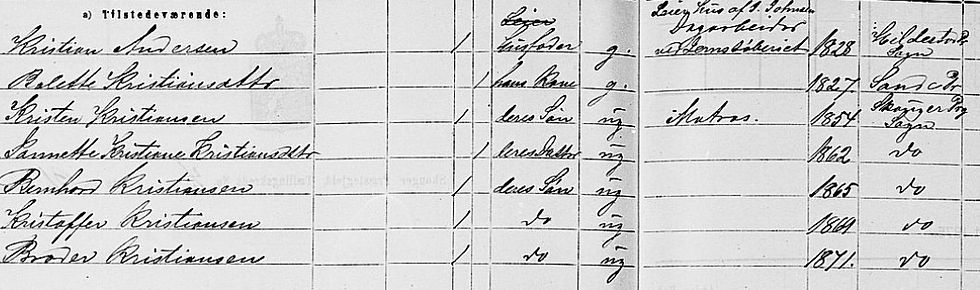 a) Tilstedeværende:
Leier Hus af J. Johnsen
Leier
Dagarbeider
Kristian Andersen 1 Husfader g. ved Jernstøberiet 1828 Sogn
Bolette Kristiansdttr 1 hans Kone g. 1827 Sande Pr
Kristen Kristiansen 1 deres Søn ug Matros. 1854 Skouger Prg Sogn
Jannette Kristiane Kristiansdttr 1 deres Dattor ug 1862 do
Bernhard Kristiansen 1 deres Søn ug 1865 do
Kristoffer Kristiansen 1 do ug 1869 do
Broder Kristiansen 1 do ug 1871. do